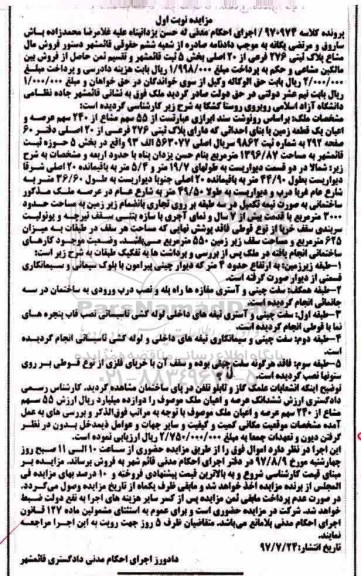 مزایده نوبت اول
پرونده کلاسه ۹۷۰۹۷۴/ اجرای احکام مدنی له حسن یزدانپناه علیه غلامرضا محمدزاده پاش
ساروق و مرتضی یگانه به موجب دادنامه صادره از شعبه ششم حقوقی قائمشهر دستور فروش مال
مشاع پلاک ثبتی ۲۷۶ فرعی از ۲۰ اصلی بخش ۵ ثبت قائمشهر و تقسیم ثمن حاصل از فروش بین
مالکین مشاعی و حکم به پرداخت مبلغ ۱/۹۹۸/۰۰۰ ریال بابت هزینه دادرسی و پرداخت مبلغ
۲/۰۰۰/۰۰۰ ریال بابت حق الوکاله وکیل از سوی خواندگان در حق خواهان و مبلغ ۱/۰۰۰/۰۰۰
ریال بابت نیم عشر دولتی در حق دولت صادر گردید ملک فوق به نشانی قائمشهر جاده نظامی
دانشگاه آزاد اسلامی روبروی روستا کشکا به شرح زیر کارشناسی گردیده است:
مشخصات ملک: براساس رونوشت سند ابرازی عبارتست از ۵۵ سهم مشاع از ۲۴۰ سهم عرصه و
اعیان یک قطعه زمین با بنای احداثی که دارای پلاک ثبتی ۲۷۶ فرعی از ۲۰ اصلی دفتر ۶۰
صفحه ۲۹۲ به شماره ثبت ۹۸۶۲ سریال اصلی ۵۶۳۰۷۷ الف ۹۳ واقع در بخش ۵ حوزه ثبت
قائمشهر به مساحت ۱۳۹۶/۸۷ مترمربع بنام حسن یزدان پناه با حدود اربعه و مشخصات به شرح
زیر: شمالا در دو قسمت دیواریست به طولهای ۱۹/۷ متر و ۵/۴ متر به باقیمانده ۲۰ اصلی شرقا
دیواریست بطول ۴۴/۹۰ متر به باقیمانده ۲۰ اصلی جنوبا دیواریست به طول ۳۶/۶۰ متر به
شارع عام غربا درب و دیواریست به طولا ۴۹/۵۰ متر به شارع عام در عرصه ملک مذکور
ساختمانی به صورت نیمه تکمیل در سه طبقه بر روی تجاری بانضمام زیر زمین به مساحت حدود
۳۰۰۰ مترمربع با قدمت بیش از ۷ سال و نمای آجری با سازه بتنی سقف تیرچه و یونولیت
سربندی سقف خرپا از نوع قوطی فاقد پوشش نهایی که مساحت هر سقف در طبقات به میزان
۶۲۵ مترمربع و مساحت سقف زیر زمین ۵۵۰ مترمربع می‌باشد. وضعیت موجود کارهای
ساختمانی انجام یافته در ملک پس از بررسی و برداشت ها به تفکیک طبقات به شرح زیر است:
۱-طبقه زیرزمین: به ارتفاع حدود ۴ متر که دیوار چینی پیرامون با بلوک سیمانی و سیمانکاری
قسمتی از دیوار صورت گرفته است.
۲-طبقه همکف: سفت چینی و آستری مغازه ها راه پله و نصب درب ورودی به ساختمان در سه
جانمائی انجام گردیده است.
۳-طبقه اول: سفت چینی و آستری تیغه های داخلی لوله کشی تاسیساتی نصب قاب پنجره های
نما با قوطی انجام گردیده است.
۴-طبقه دوم: سفت چینی و سیمانکاری تیغه های داخلی و لوله کشی تاسیساتی انجام گردیده
است.
۵-طبقه سوم: فاقد هرگونه سفت چینی بوده و سقف آن با خرپای فلزی از نوع قوطی بر روی
ستونها نصب گردیده است.
توضیح اینکه انشعابات علمک گاز و تابلو تلفن در پای ساختمان مشاهده گردید. کارشناس رسمی
دادگستری ارزش ششدانگ عرصه و اعیان ملک موصوف را دوازده میلیارد ریال ارزش ۵۵ سهم
مشاع از ۲۴۰ سهم عرصه و اعیان ملک موصوف با توجه به مراتب فوق‌الذکر و بررسی های به عمل
آمده مشخصات موقعیت مکانی کمیت و کیفیت و سایر جهات و عوامل ذیمدخل بدون در نظر
گرفتن دیون و تعهدات جمعا به مبلغ ۲/۷۵۰/۰۰۰/۰۰۰ ریال ارزیابی نموده است.
این اجرا در نظر دارد اموال فوق را از طریق مزایده حضوری از ساعت ۱۰ الی ۱۱ صبح روز
چهارشنبه مورخ ۹۷/۸/۹ در دفتر اجرای احکام مدنی قائم شهر به فروش برساند. مزایده بر
مبنای قیمت کارشناسی شروع و به بالاترین قیمت پیشنهادی فروخته و ۱۰ درصد بهای مزایده فی
المجلس از برنده مزایده اخذ خواهد شد و مابقی ظرف یکماه از تاریخ مزایده وصول می‌گردد.
در صورت عدم پرداخت مابقی ثمن مزایده پس از کسر سایر هزینه های اجرا به نفع دولت ضبط
خواهد شد. شرکت در مزایده حضوری است و برای عموم به استثنای مشمولین ماده ۱۲۷ قانون
اجرای احکام مدنی بلامانع می‌باشد. متقاضیان ظرف ۵ روز جهت رویت به این اجرا مراجعه
نمایند.
تاریخ انتشار: ۹۷/۷/۲۴
دادورز اجرای احکام مدنی دادگستری قائمشهر